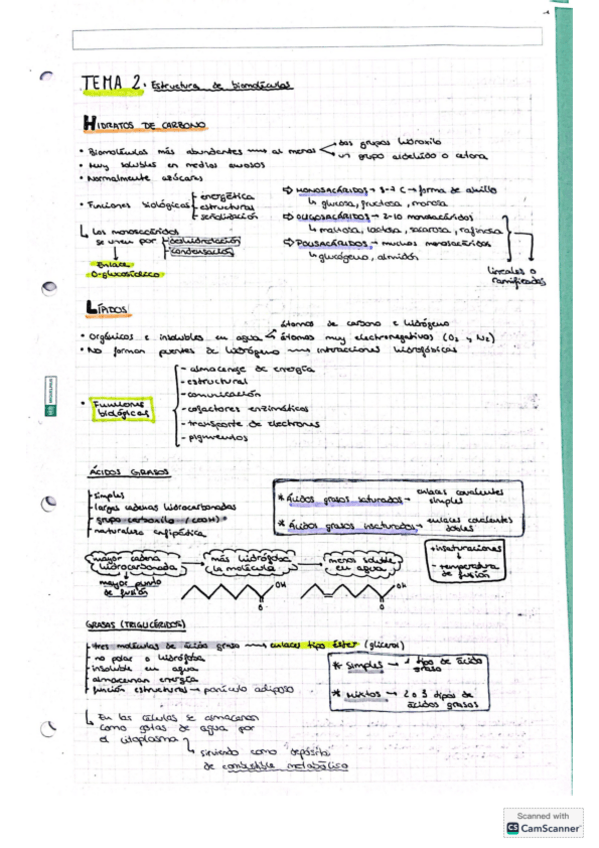 TEMA 2. Estructura de biomoléculas
HIDRATOS DE CARBONO
• Biomoléculas más abundentes → al menos dos grupos hidroxilo
un grupo aldehído o cetona
• Muy solubles en medios acuosos
• Normalmente azúcares
• Funciones biológicas - energética
- estructural
- señalización
↳ Los monosacáridos
se unen por - deshidratación
- condensación
Enlace
O-glucosídico
⇨ MONOSACÁRIDOS → 3-7 C → forma de anillo
↳ glucosa, fructosa, manosa
⇨ OLIGOSACÁRIDOS → 2-10 monosacáridos
↳ maltosa, lactosa, sacarosa, rafinosa
⇨ POLISACÁRIDOS → muchos monosacáridos
↳ glucógeno, almidón
lineales o
ramificados
LÍPIDOS
• Orgánicos e insolubles en agua átomos de carbono e hidrógeno
átomos muy electronegativos (O₂ y N₂)
• No forman puentes de hidrógeno → interacciones hidrofóbicas
• Funciones
biológicas
- almacenaje de energía
- estructural
- comunicación
- cofactores enzimáticos
- transporte de electrones
- pigmentos
ÁCIDOS GRASOS
- simples
- largas cadenas hidrocarbonadas
- grupo carboxilo (COOH)
- naturaleza anfipática
* Ácidos grasos saturados → enlaces covalentes
simples
* Ácidos grasos insaturados → enlaces covalentes
dobles
mayor cadena
hidrocarbonada
mayor punto
de fusión
más hidrófoba
la molécula
menos soluble
en agua
+ insaturaciones
- temperatura
de fusión
OH
O
OH
O
GRASAS (TRIGLICÉRIDOS)
- tres moléculas de ácido graso → enlaces tipo éster (glicerol)
- no polar o hidrófoba
- insoluble en agua
- almacenan energía
- función estructural → panículo adiposo
* Simples → 1 tipo de ácido
graso
* Mixtos → 2 o 3 tipos de
ácidos grasos
↳ En las células se almacenan
como gotas de agua por
el citoplasma
↳ sirviendo como "depósito"
de combustible metabólico
Scanned with
CS CamScanner